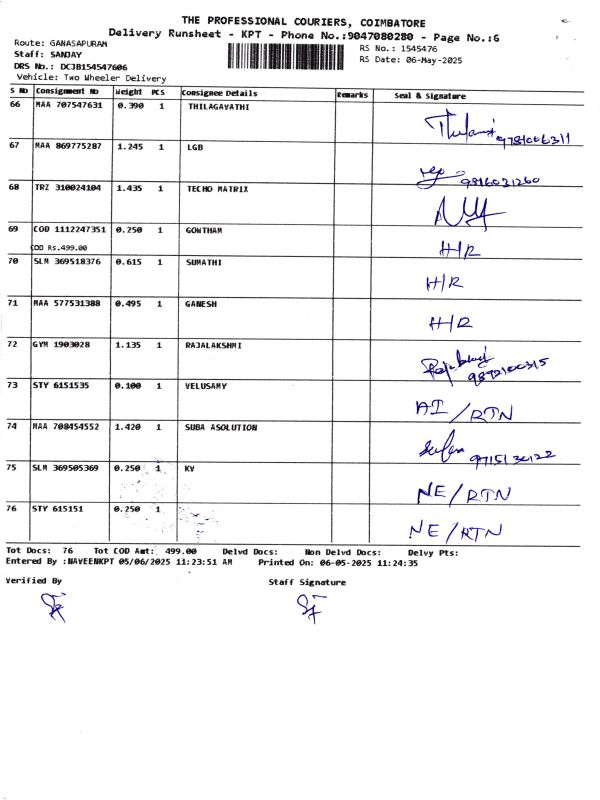 THE PROFESSIONAL COURIERS, COIMBATORE
Delivery Runsheet - KPT - Phone No.:9047080280 - Page No.:6
Route: GANASAPURAM
RS No.: 1545476
Staff: SANJAY
RS Date: 06-May-2025
DRS No.: DCJB154547606
Vehicle: Two Wheeler Delivery
S No Consignment No Weight PCS Consignee Details Remarks Seal & Signature
66 MAA 707547631 0.390 1 THILAGAVATHI
9781006311
67 MAA 869775287 1.245 1 LGB
9816031260
68 TRZ 310024104 1.435 1 TECHO MATRIX
69 COD 1112247351 0.250 1 GONTHAM H/R
COD Rs.499.00
70 SLM 369518376 0.615 1 SUMATHI H/R
71 MAA 577531388 0.495 1 GANESH H/R
72 GYM 1903028 1.135 1 RAJALAKSHMI
9892100315
73 STY 6151535 0.100 1 VELUSAMY AI/RTN
74 MAA 708454552 1.420 1 SUBA ASOLUTION
9715130122
75 SLM 369505369 0.250 1 KV NE/RTN
76 STY 615151 0.250 1 NE/RTN
Tot Docs: 76 Tot COD Amt: 499.00 Delvd Docs: Non Delvd Docs: Delvy Pts:
Entered By :NAVEENKPT 05/06/2025 11:23:51 AM Printed On: 06-05-2025 11:24:35
Verified By Staff Signature